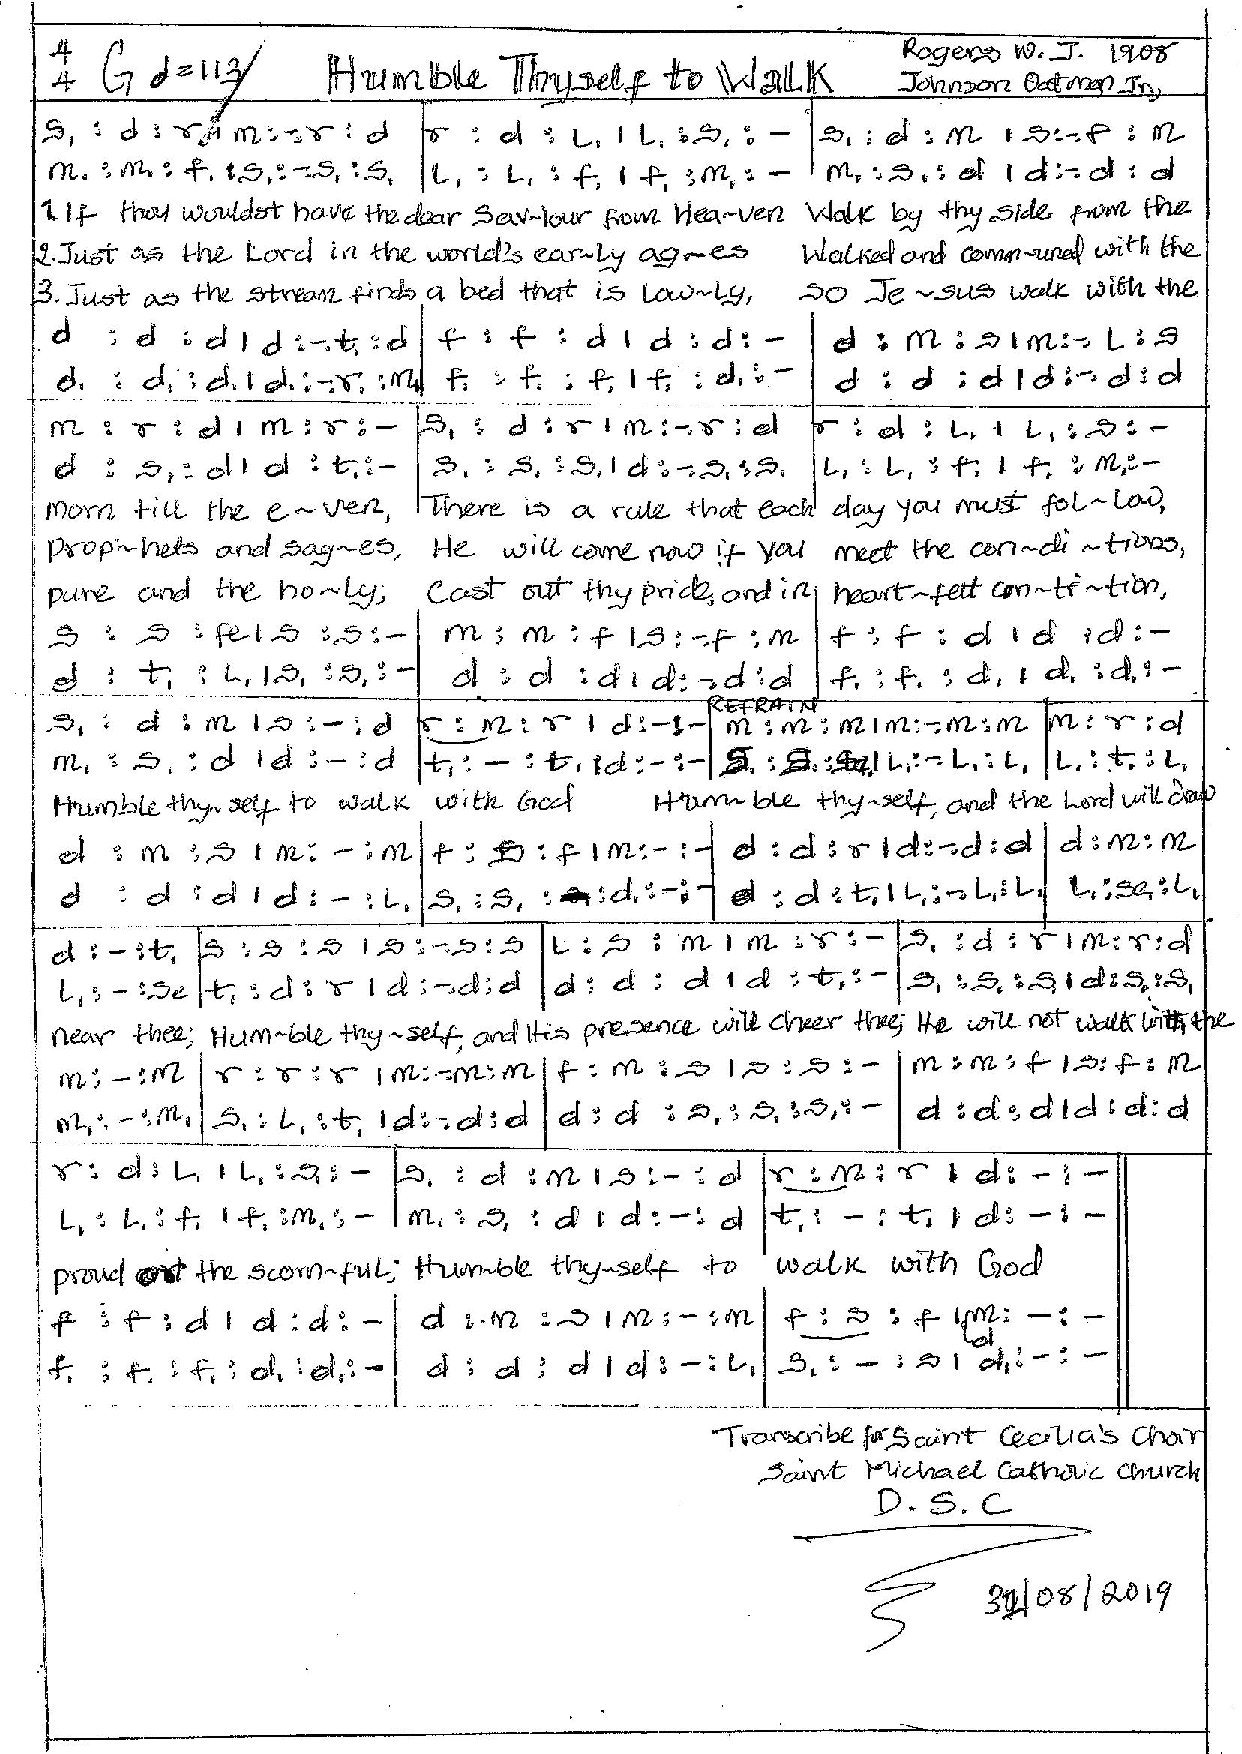 4/4 G d=113/ Humble Thyself to Walk Rogers W. J. 1908
Johnson Oatman Jr,
s, : d : r | m : - : r : d | r : d : l, | l, : s, : - | s, : d : m | s : - f : m
m, : m, : f, | s, : - s, : s, | l, : l, : f, | f, : m, : - | m, : s, : d | d : - d : d
1. If thou wouldst have the dear Sav~iour from Hea~ven Walk by thy side from the
2. Just as the Lord in the world's ear~ly ag~es Walked and comm~uned with the
3. Just as the stream finds a bed that is low~ly, So Je~sus walk with the
d : d : d | d : - t, : d | f : f : d | d : d : - | d : m : s | m : - l : s
d, : d, : d, | d, : - r, : m, | f, : f, : f, | f, : d, : - | d : d : d | d : - d : d
m : r : d | m : r : - | s, : d : r | m : - r : d | r : d : l, | l, : s : -
d : s, : d | d : t, : - | s, : s, : s, | d : - s, : s, | l, : l, : f, | f, : m, : -
morn till the e~ven, There is a rule that each day you must fol~low,
proph~hets and sag~es, He will come now if you meet the con~di~tions,
pure and the ho~ly; Cast out thy pride, and in heart~felt con~tri~tion,
s : s : fe | s : s : - | m : m : f | s : - f : m | f : f : d | d : d : -
d : t, : l, | s, : s, : - | d : d : d | d : - d : d | f, : f, : d, | d, : d, : -
REFRAIN
s, : d : m | s : - : d | r : m : r | d : - : - | m : m : m | m : - m : m | m : r : d
m, : s, : d | d : - : d | t, : - : t, | d : - : - | l, : - l, : l, | l, : t, : l,
Humble thy~self to walk with God Hum~ble thy~self, and the Lord will draw
d : m : s | m : - : m | f : s : f | m : - : - | d : d : r | d : - d : d | d : m : m
d : d : d | d : - : l, | s, : s, : d, : - : - | d : d : t, | l, : - l, : l, | l, : se, : l,
d : - : t, | s : s : s | s : - s : s | l : s : m | m : r : - | s, : d : r | m : r : d
l, : - : se | t, : d : r | d : - d : d | d : d : d | d : t, : - | s, : s, : s, | d : s, : s,
near thee; Hum~ble thy~self, and His presence will cheer thee; He will not walk with the
m : - : m | r : r : r | m : - m : m | f : m : s | s : s : - | m : m : f | s : f : m
m, : - : m, | s, : l, : t, | d : - d : d | d : d : s, : s, : s, : - | d : d : d | d : d : d
r : d : l, | l, : s, : - | s, : d : m | s : - : d | r : m : r | d : - : -
l, : l, : f, | f, : m, : - | m, : s, : d | d : - : d | t, : - : t, | d : - : -
proud the scorn~ful; Humble thy~self to walk with God
f : f : d | d : d : - | d : m : s | m : - : m | f : s : f | m : - : -
d
f, : f, : f, : d, : d, : - | d : d : d | d : - : l, | s, : - : s | d, : - : -
Transcribe for Saint Cecilia's Choir
Saint Michael Catholic Church
D. S. C
/08/2019